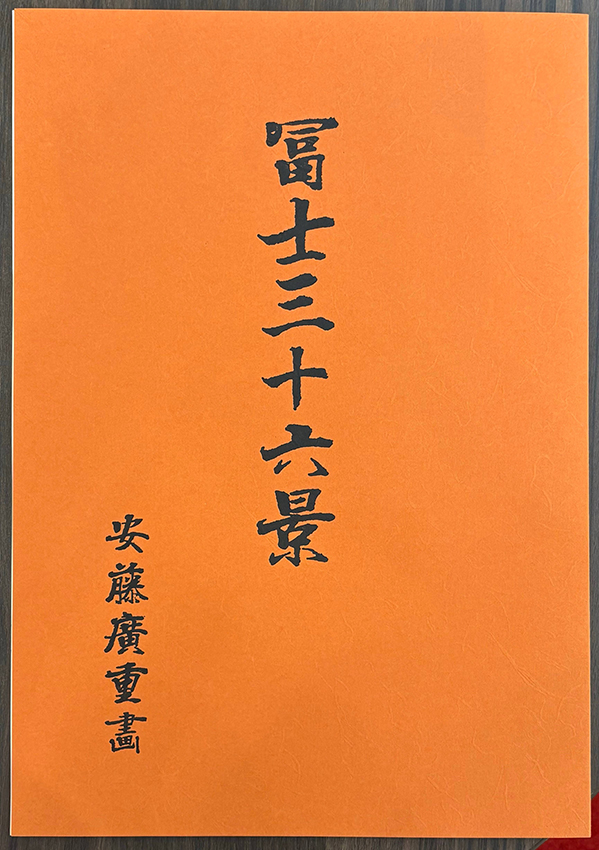 冨士三十六景
安藤廣重畫